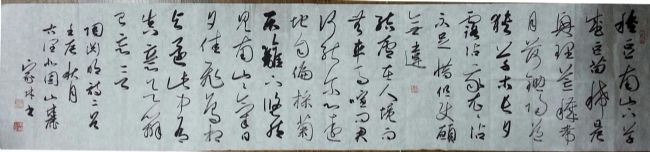 種豆南山下草
盛豆苗稀晨
興理荒穢帶
月荷鋤歸道
狹草木長夕
露沾我衣衣沾
不足惜但使願
無違
結廬在人境而
無車馬喧問君
何能尔心遠
地自偏採菊
東籬下悠然
見南山山氣日
夕佳飛鳥相
與還此中有
真意欲辨
已忘言
陶渊明詩二首
壬辰秋月
北園山麓